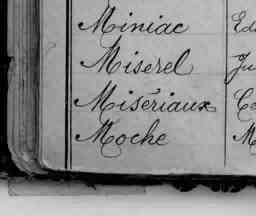 Miniac Ed
Miserel Ju
Misériaux
Moche M